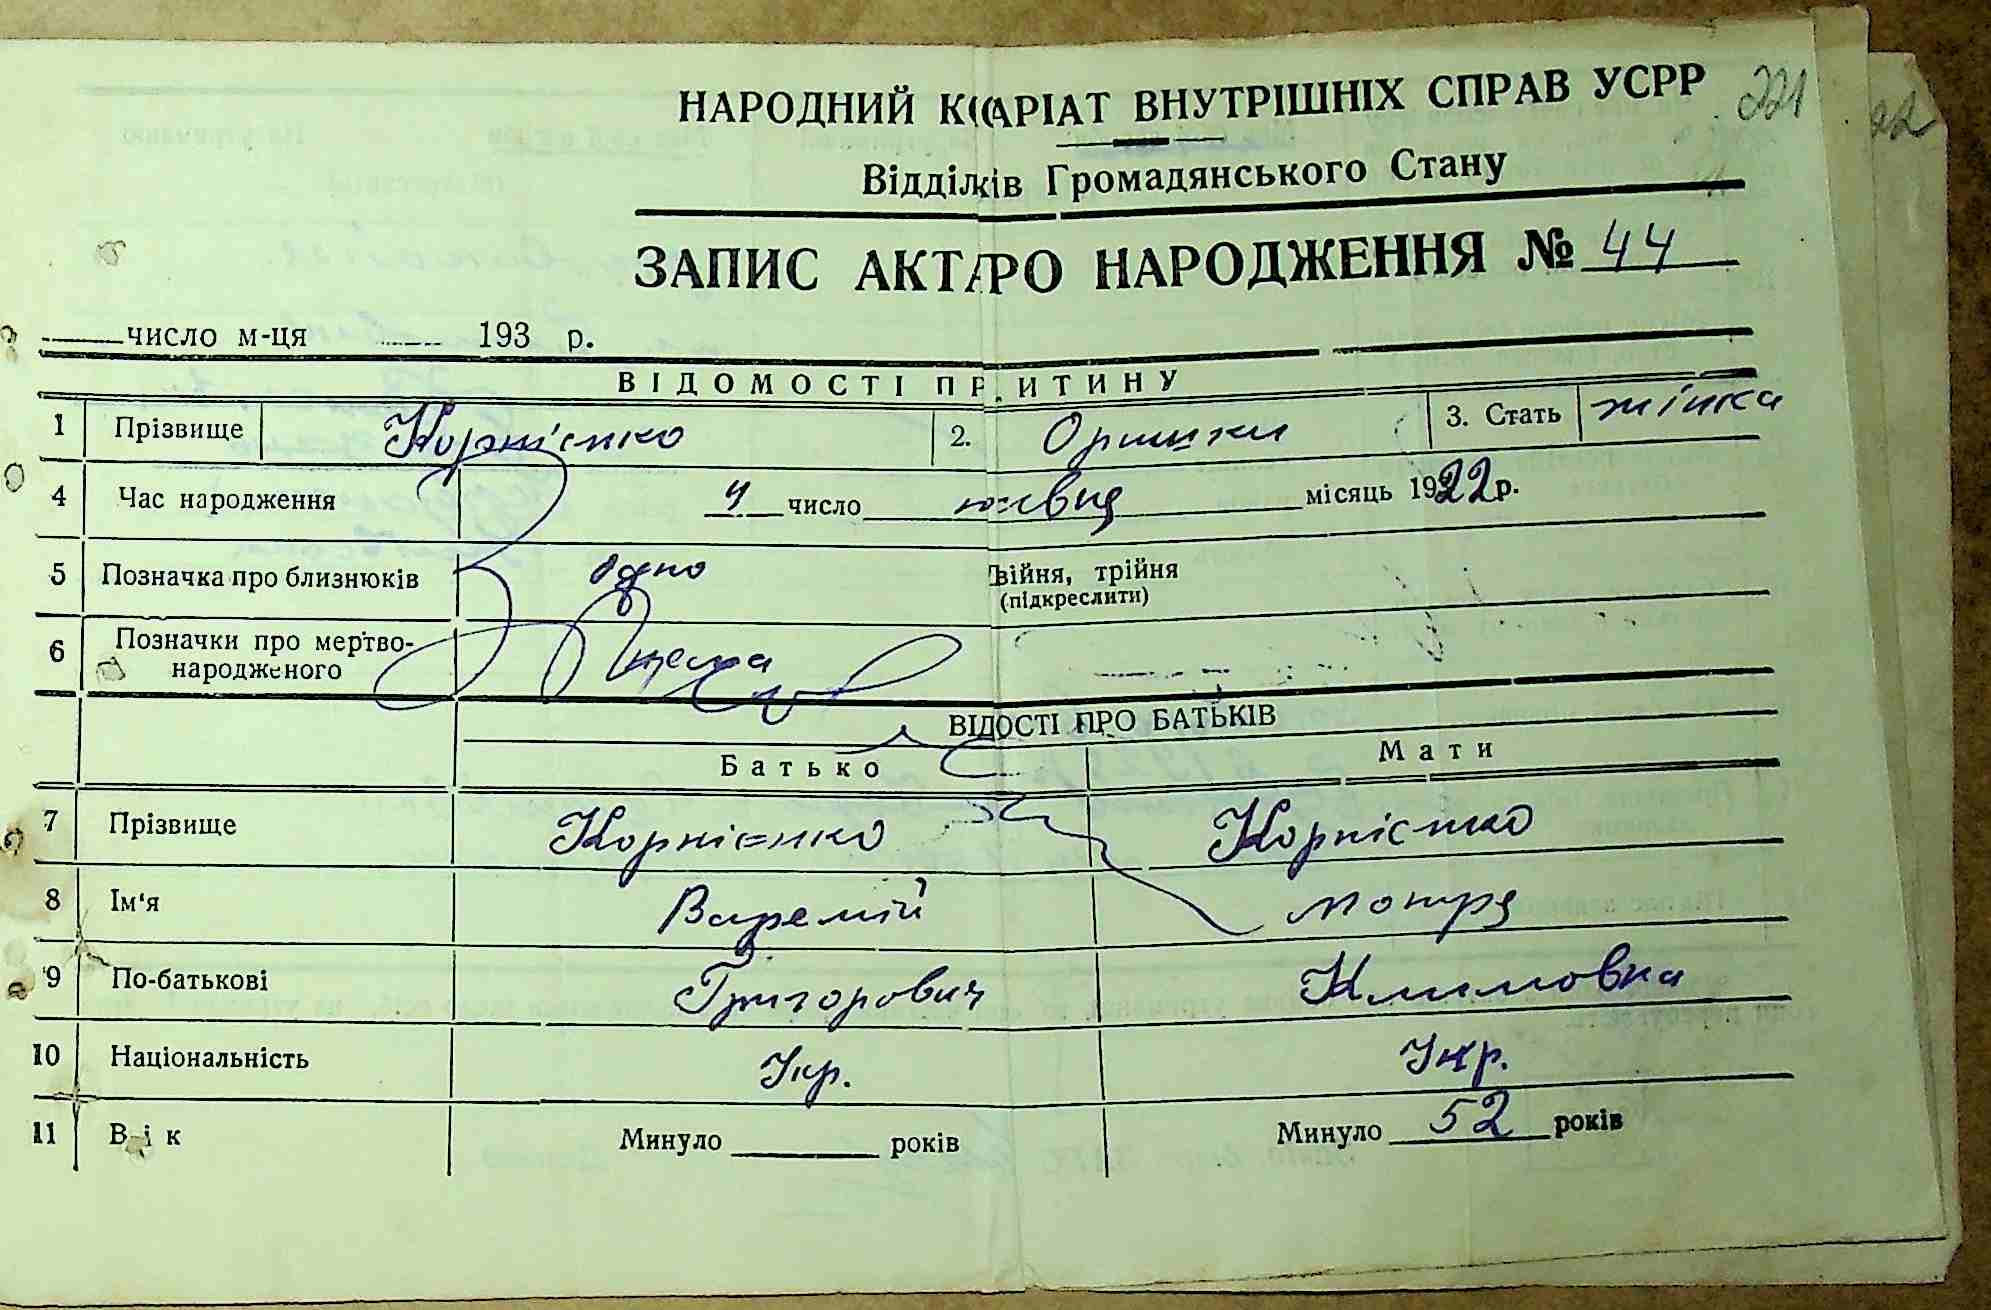 НАРОДНИЙ К АРІАТ ВНУТРІШНІХ СПРАВ УСРР 221
22
Відділ ків Громадянського Стану
ЗАПИС АКТА РО НАРОДЖЕННЯ № 44
число м-ця 193 р.
ВІДОМОСТІ ПР ИТИНУ
1 Прізвище Корнієнко 2. Оришки 3. Стать жінка
4 Час народження 4 число жовця місяць 1922 р.
5 Позначка про близнюків одно війня, трійня
(підкреслити)
6 Позначки про мертво-
народженого
ВІДОСТІ ПРО БАТЬКІВ
Батько Мати
7 Прізвище Корнієнко Корнієнко
8 Ім'я Мотря
9 По-батькові Григорович Климовна
10 Національність Укр. Укр.
11 Вік Минуло років Минуло 52 років